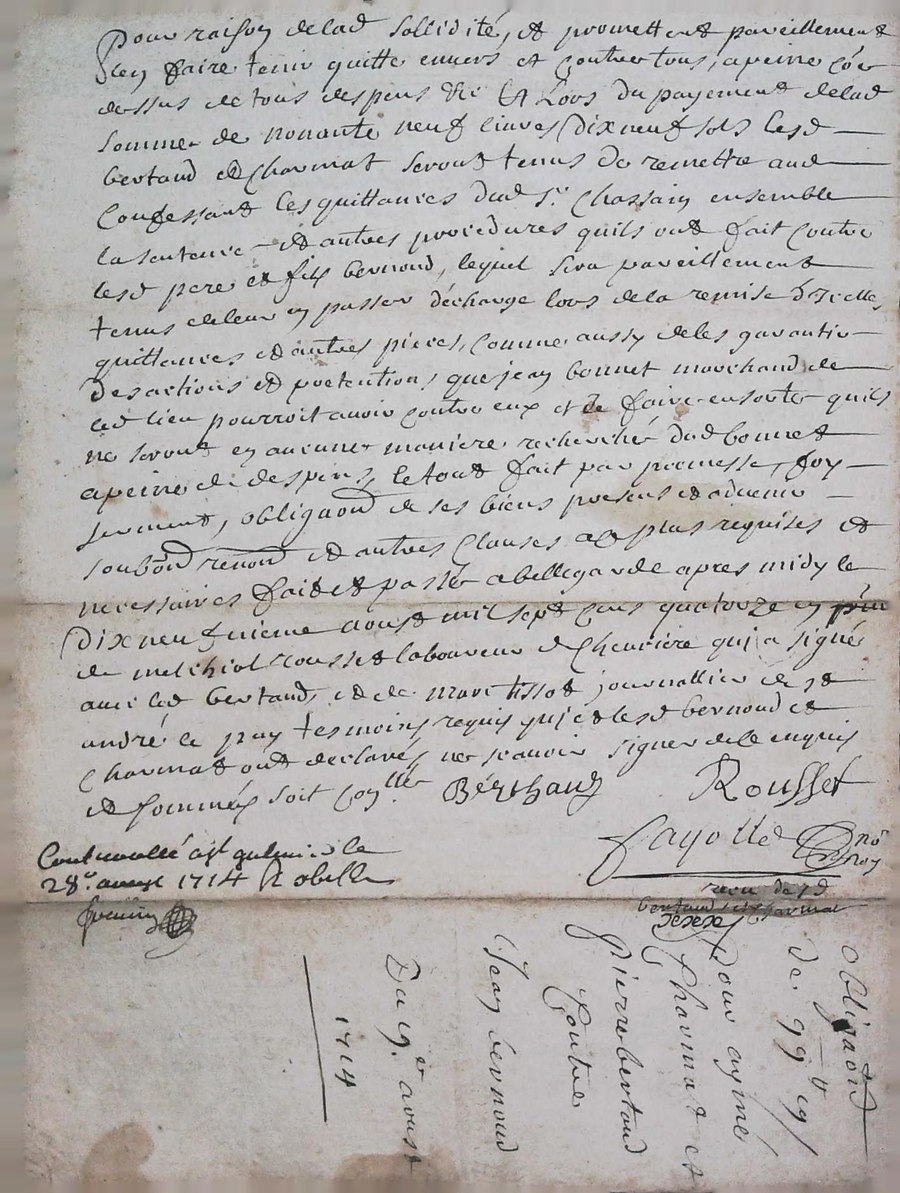 Pour raison delad sollidité, et promettent pareillement
len faire tenir quitte envers et contre tous, apeine côe
dessus de tous despens &c Et Lors du payement delad
somme de nonante neuf livres dix neuf sols lesd
bertand et Charmat seront tenus de remettre aud
Confessant les quittances dud Sr. Chassain ensemble
la sentence et autres procedures quils ont fait contre
lesd pere et fils bernoud, lequel sera pareillement
tenus de leur en passer décharge lors de la remise d'icelles
quittances et autres pieces, comme aussy de les garantir
des actions et pretentions que jean bonnet marchand de
ced lieu pourroit avoir contre eux et de faire ensorte quils
ne seront en aucune maniere recherché dud bonnet
apeine de despens, le tout fait par promesse, foy
serment, obligaon de ses biens presens et advenir
soubon renon et autres Clauses a ce plus requises et
necessaires fait et passé a bellegarde apres midy le
Dix neufvieme aoust mil sept cens quatorze en pñce
de melchiol rousset laboureur de Cheuriere qui a signé
avec led bertand, et de marc tissot journallier de st
andré le puy tesmoins requis qui et lesd bernoud et
Charmat ont declaré ne sçavoir signer de ce enquis
et sommés soit conllé Bérthand Rousset
fayolle no roy
Controollé a st galmier le
28e. aoust 1714 R obelle
bertand et Charmat
obligaon
de 99 ₶ 19 s
pour aymé
Charmat et
pierre bertand
Contre
Jean bernoud
Du 19e aoust
1714